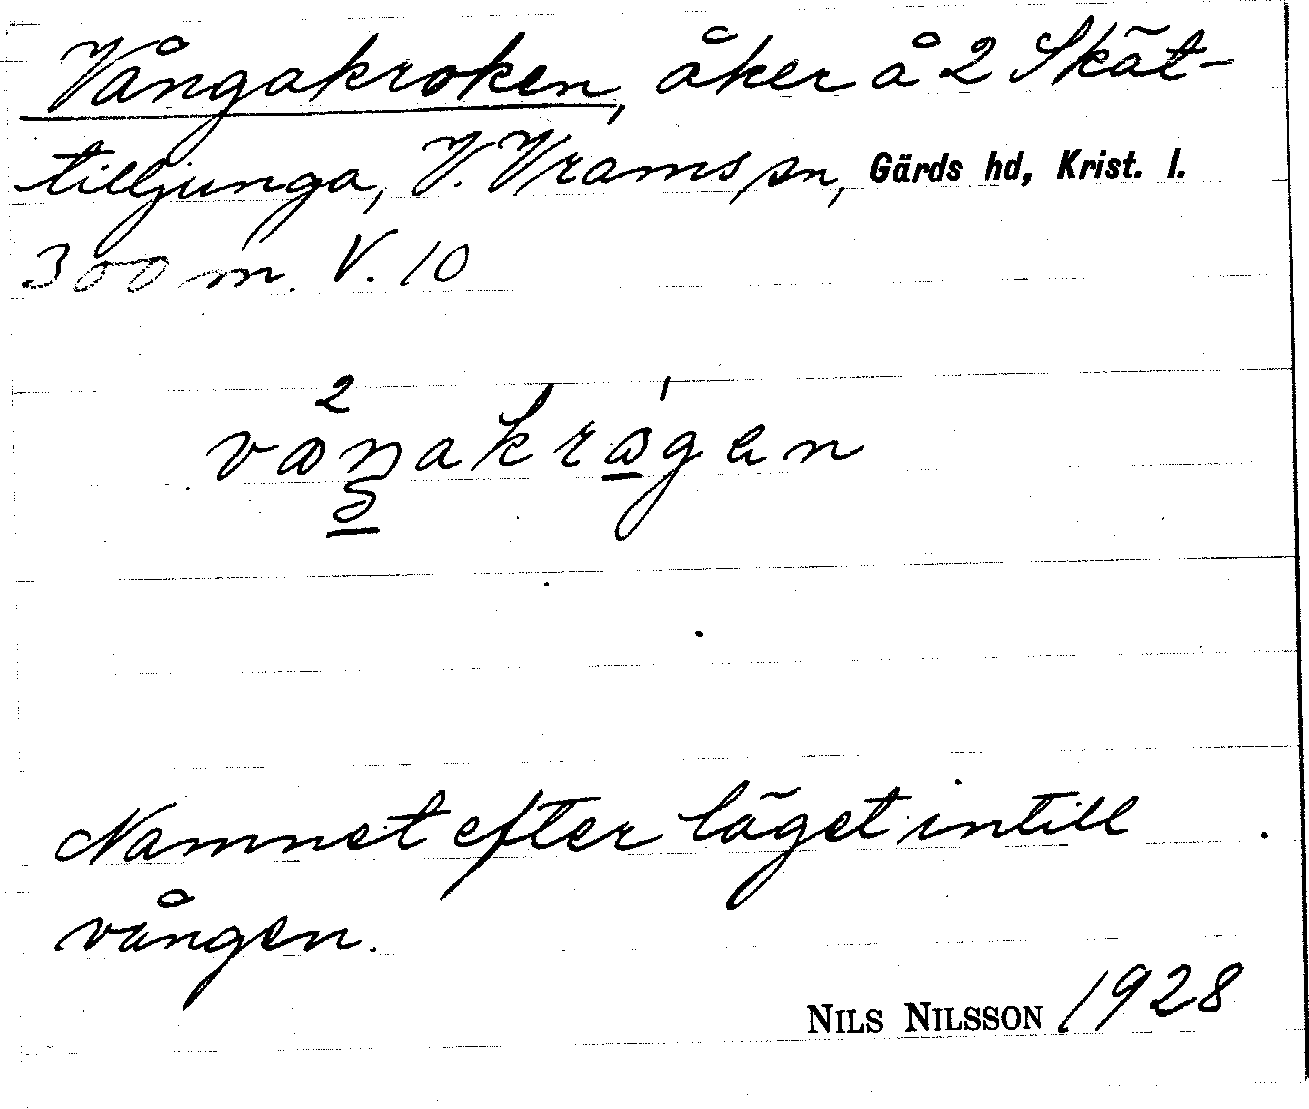 Vångakroken, åker å 2 Skät-
tilljunga, V. Vrams sn, Gärds hd, Krist. l.
300 m. V. 10
Namnet efter läget intill
vången.
NILS NILSSON 1928